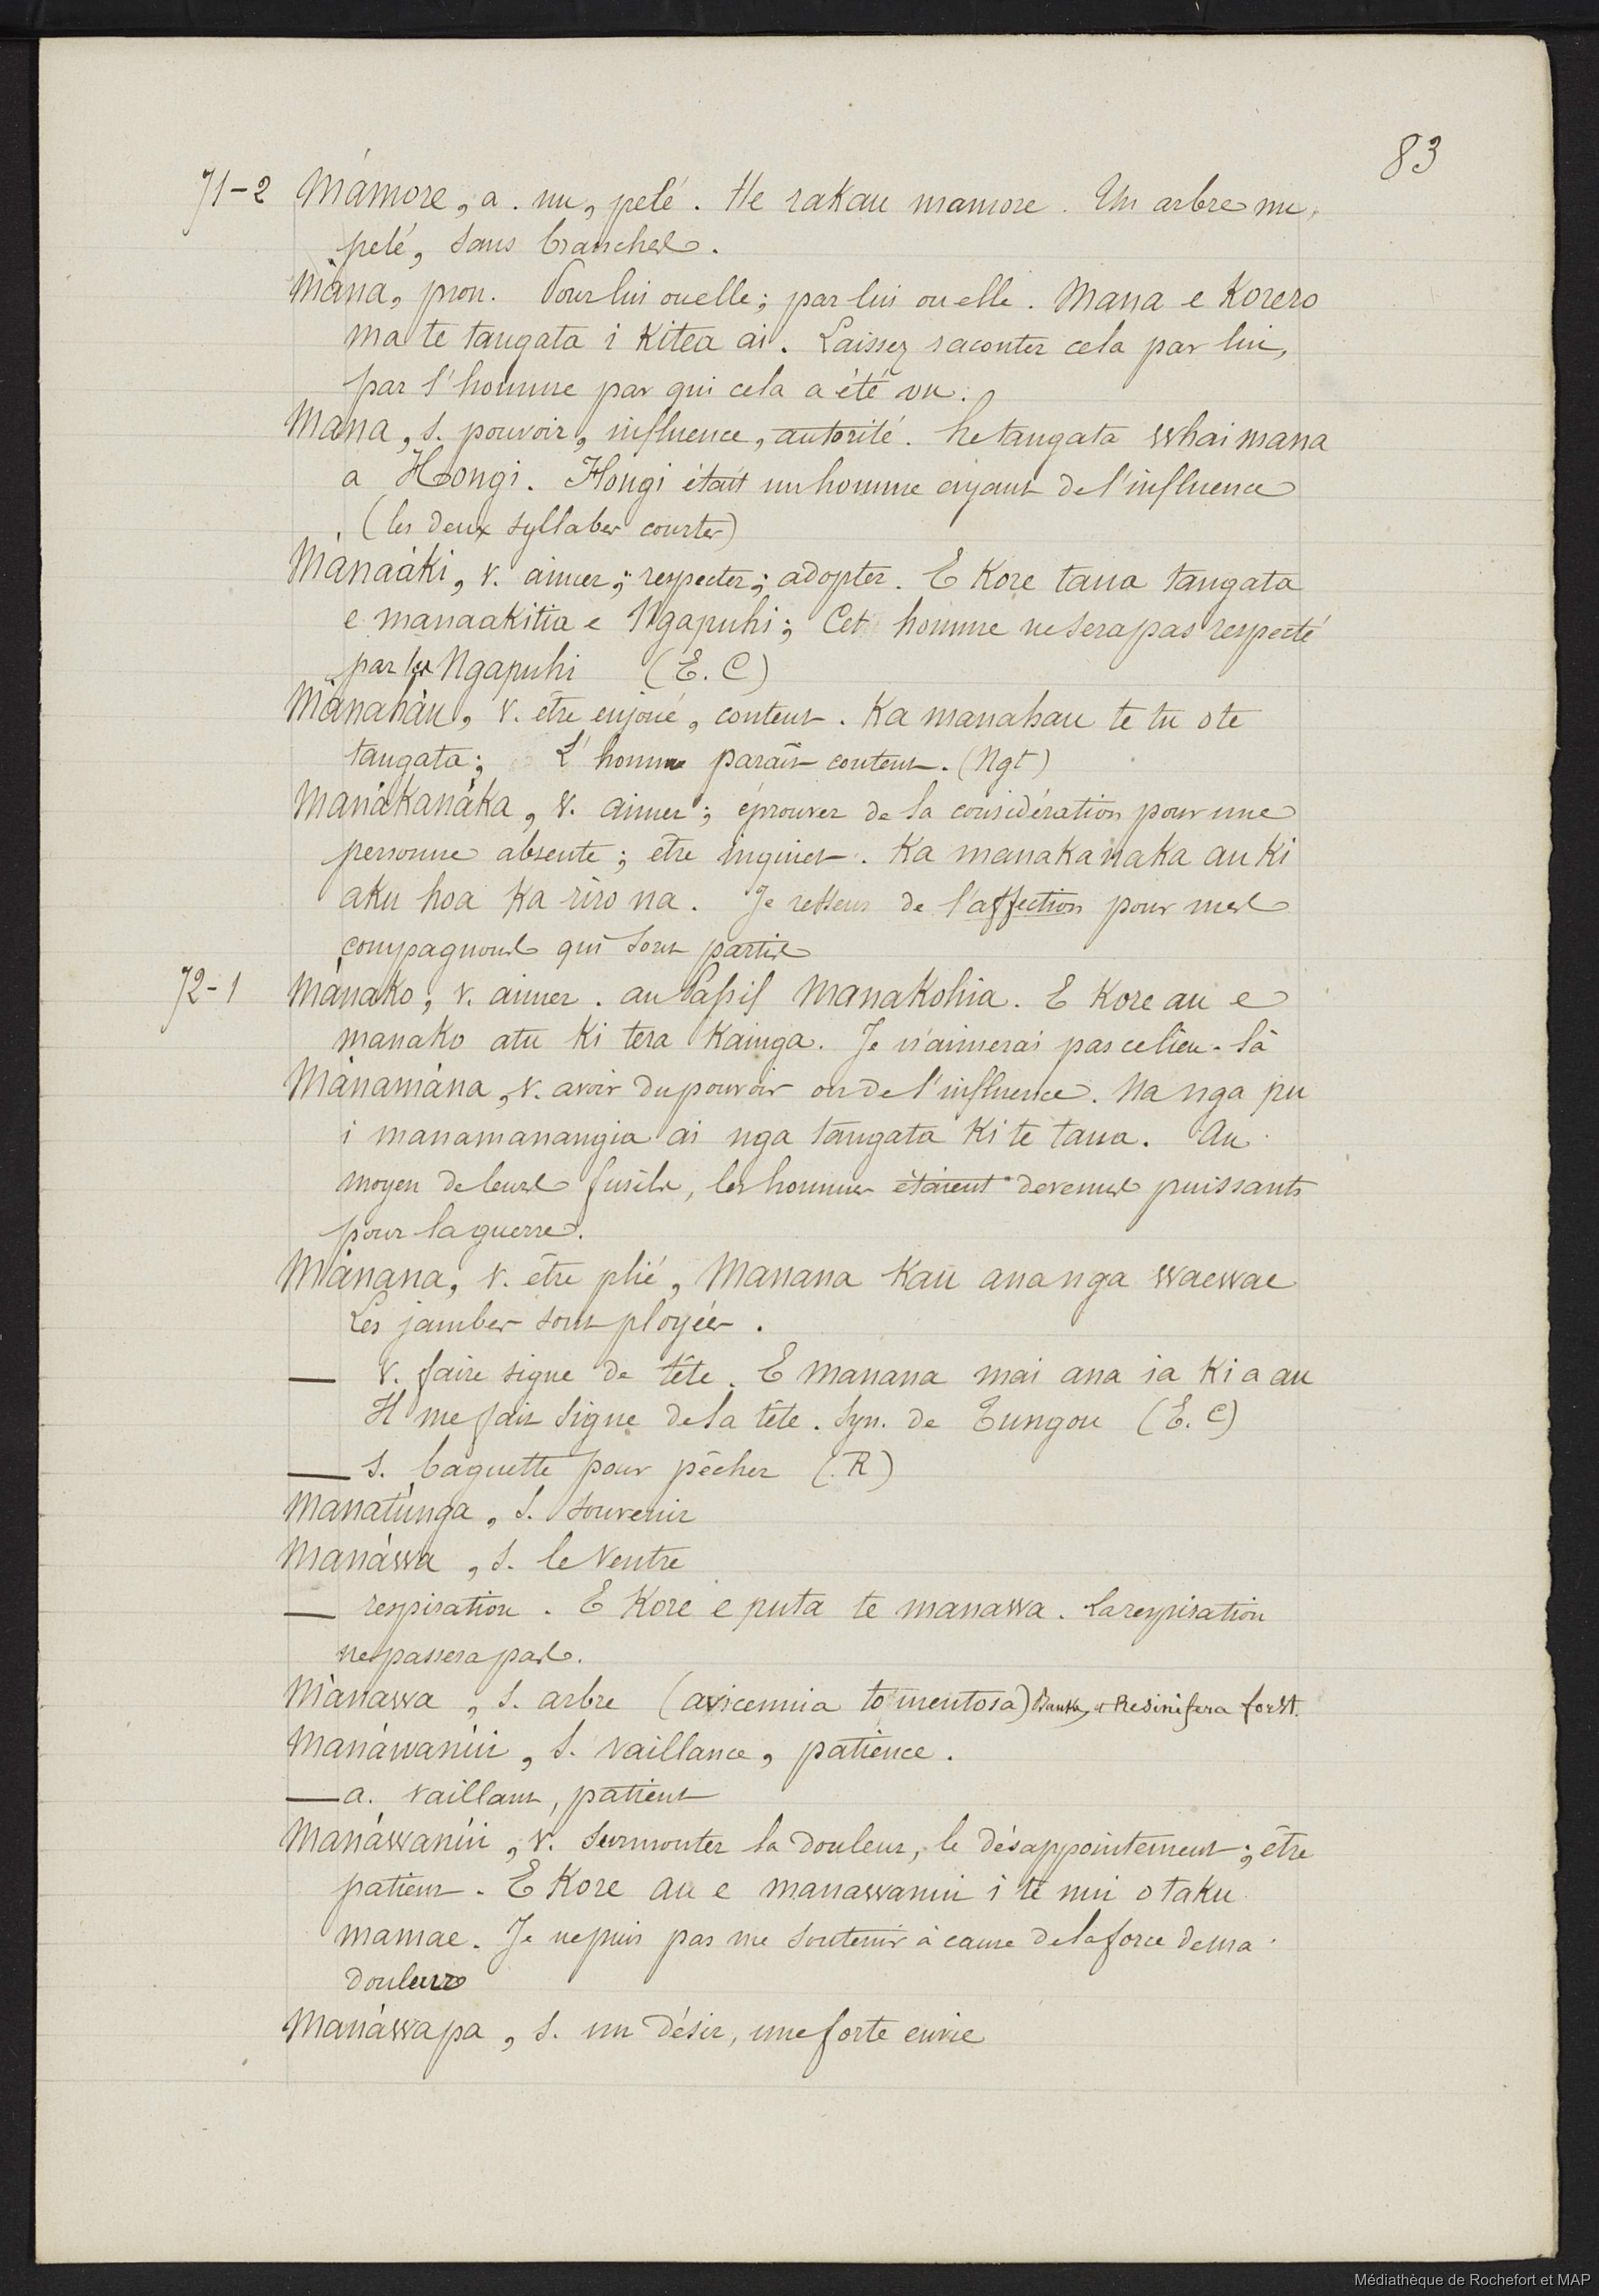 83
71-2 Mámore, a. nu, pelé. He rakau mamore. Un arbre nu,
pelé, sans branches.
Màna, pron. Pour lui ou elle; par lui ou elle. Mana e Korero
ma te tangata i Kitea ai. Laissez raconter cela par lui,
par l'homme par qui cela a été vu.
Mana, s. pouvoir, influence, autorité. he tangata whai mana
a Hongi. Hongi était un homme ayant de l'influence
(les deux syllabes courtes)
Mànaáki, v. aimer; respecter; adopter. E Kore taua tangata
e manaakitia e Ngapuhi; Cet homme ne sera pas respecté
par les Ngapuhi (E. C)
Mànahàu, v. être enjoué, content. Ka manahau te tu o te
tangata; L'homme parait content. (Ngt)
Manákanáka, v. aimer; éprouver de la considération pour une
personne absente; être inquiet. Ka manakanaka au Ki
aku hoa Ka riro na. Je ressens de l'affection pour mes
compagnons qui sont partis
72-1 Mànako, v. aimer. au Passif Manakohia. E Kore au e
manako atu Ki tera Kainga. Je n'aimerai pas ce lieu-là
Mànamàna, v. avoir du pouvoir ou de l'influence. Na nga pu
i manamanangia ai nga tangata Ki te taua. Au
moyen de leurs fusils, les hommes étaient devenus puissants
pour la guerre.
Mànana, v. être plié, Manana Kau ana nga waewae
Les jambes sont ployées.
— v. faire signe de tête. E Manana mai ana ia Ki a au
Il me fait signe de la tête. Syn. de Tungou (E. C)
— s. baguette pour pêcher (R)
Manatúnga, s. souvenir
Manáwa, s. le Ventre
— respiration. E Kore e puta te manawa. La respiration
ne passera pas.
Mànawa, s. arbre (avicennia tomentosa) Banks, et Resinifera forst.
Manáwanúi, s. vaillance, patience.
— a. vaillant, patient
Manáwanúi, v. surmonter la douleur, le désappointement; être
patient. E Kore au e manawanui i te nui o taku
mamae. Je ne puis pas me soutenir à cause de la force de ma
douleur
Manáwapa, s. un désir, une forte envie
Médiathèque de Rochefort et MAP